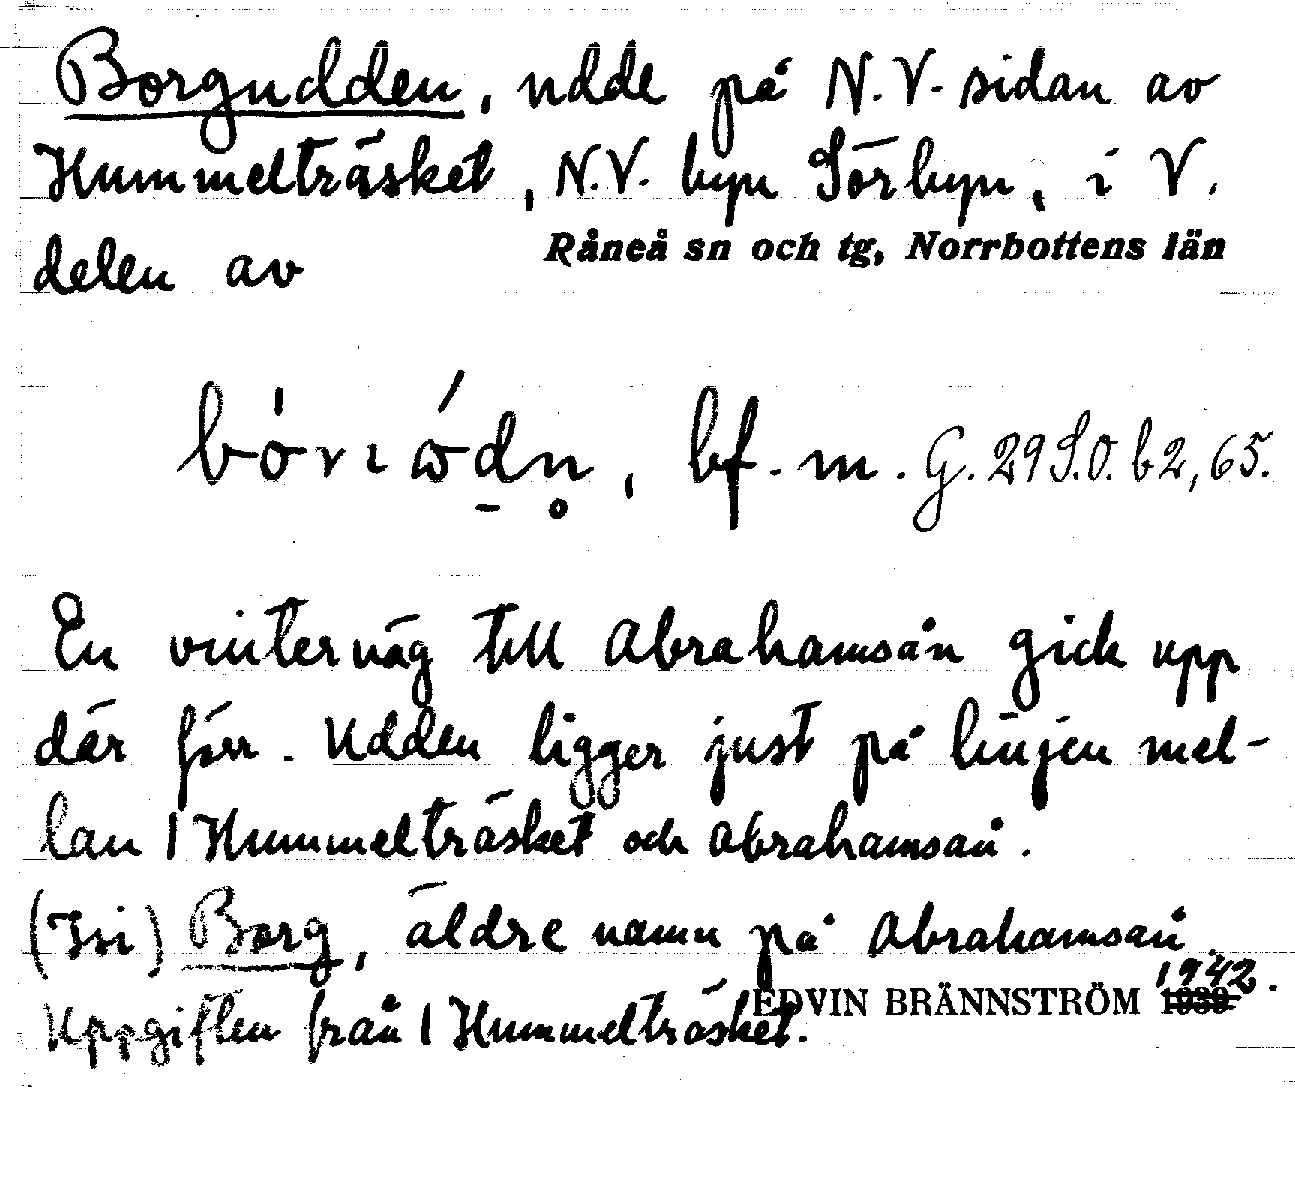 Borgudden, udde på N.V. sidan av
Hummelträsket, N.V. byn Sörbyn, i V.
delen av Råneå sn och tg, Norrbottens län
bf. m. G. 29 S.O. b2, 65.
En vinterväg till Abrahamsån gick upp
där förr. Udden ligger just på linjen mel-
lan l Hummelträsket och Abrahamsån.
Borg, äldre namn på Abrahamsån.
Uppgiften från l Hummelträsket.
EDVIN BRÄNNSTRÖM 1939 1942.